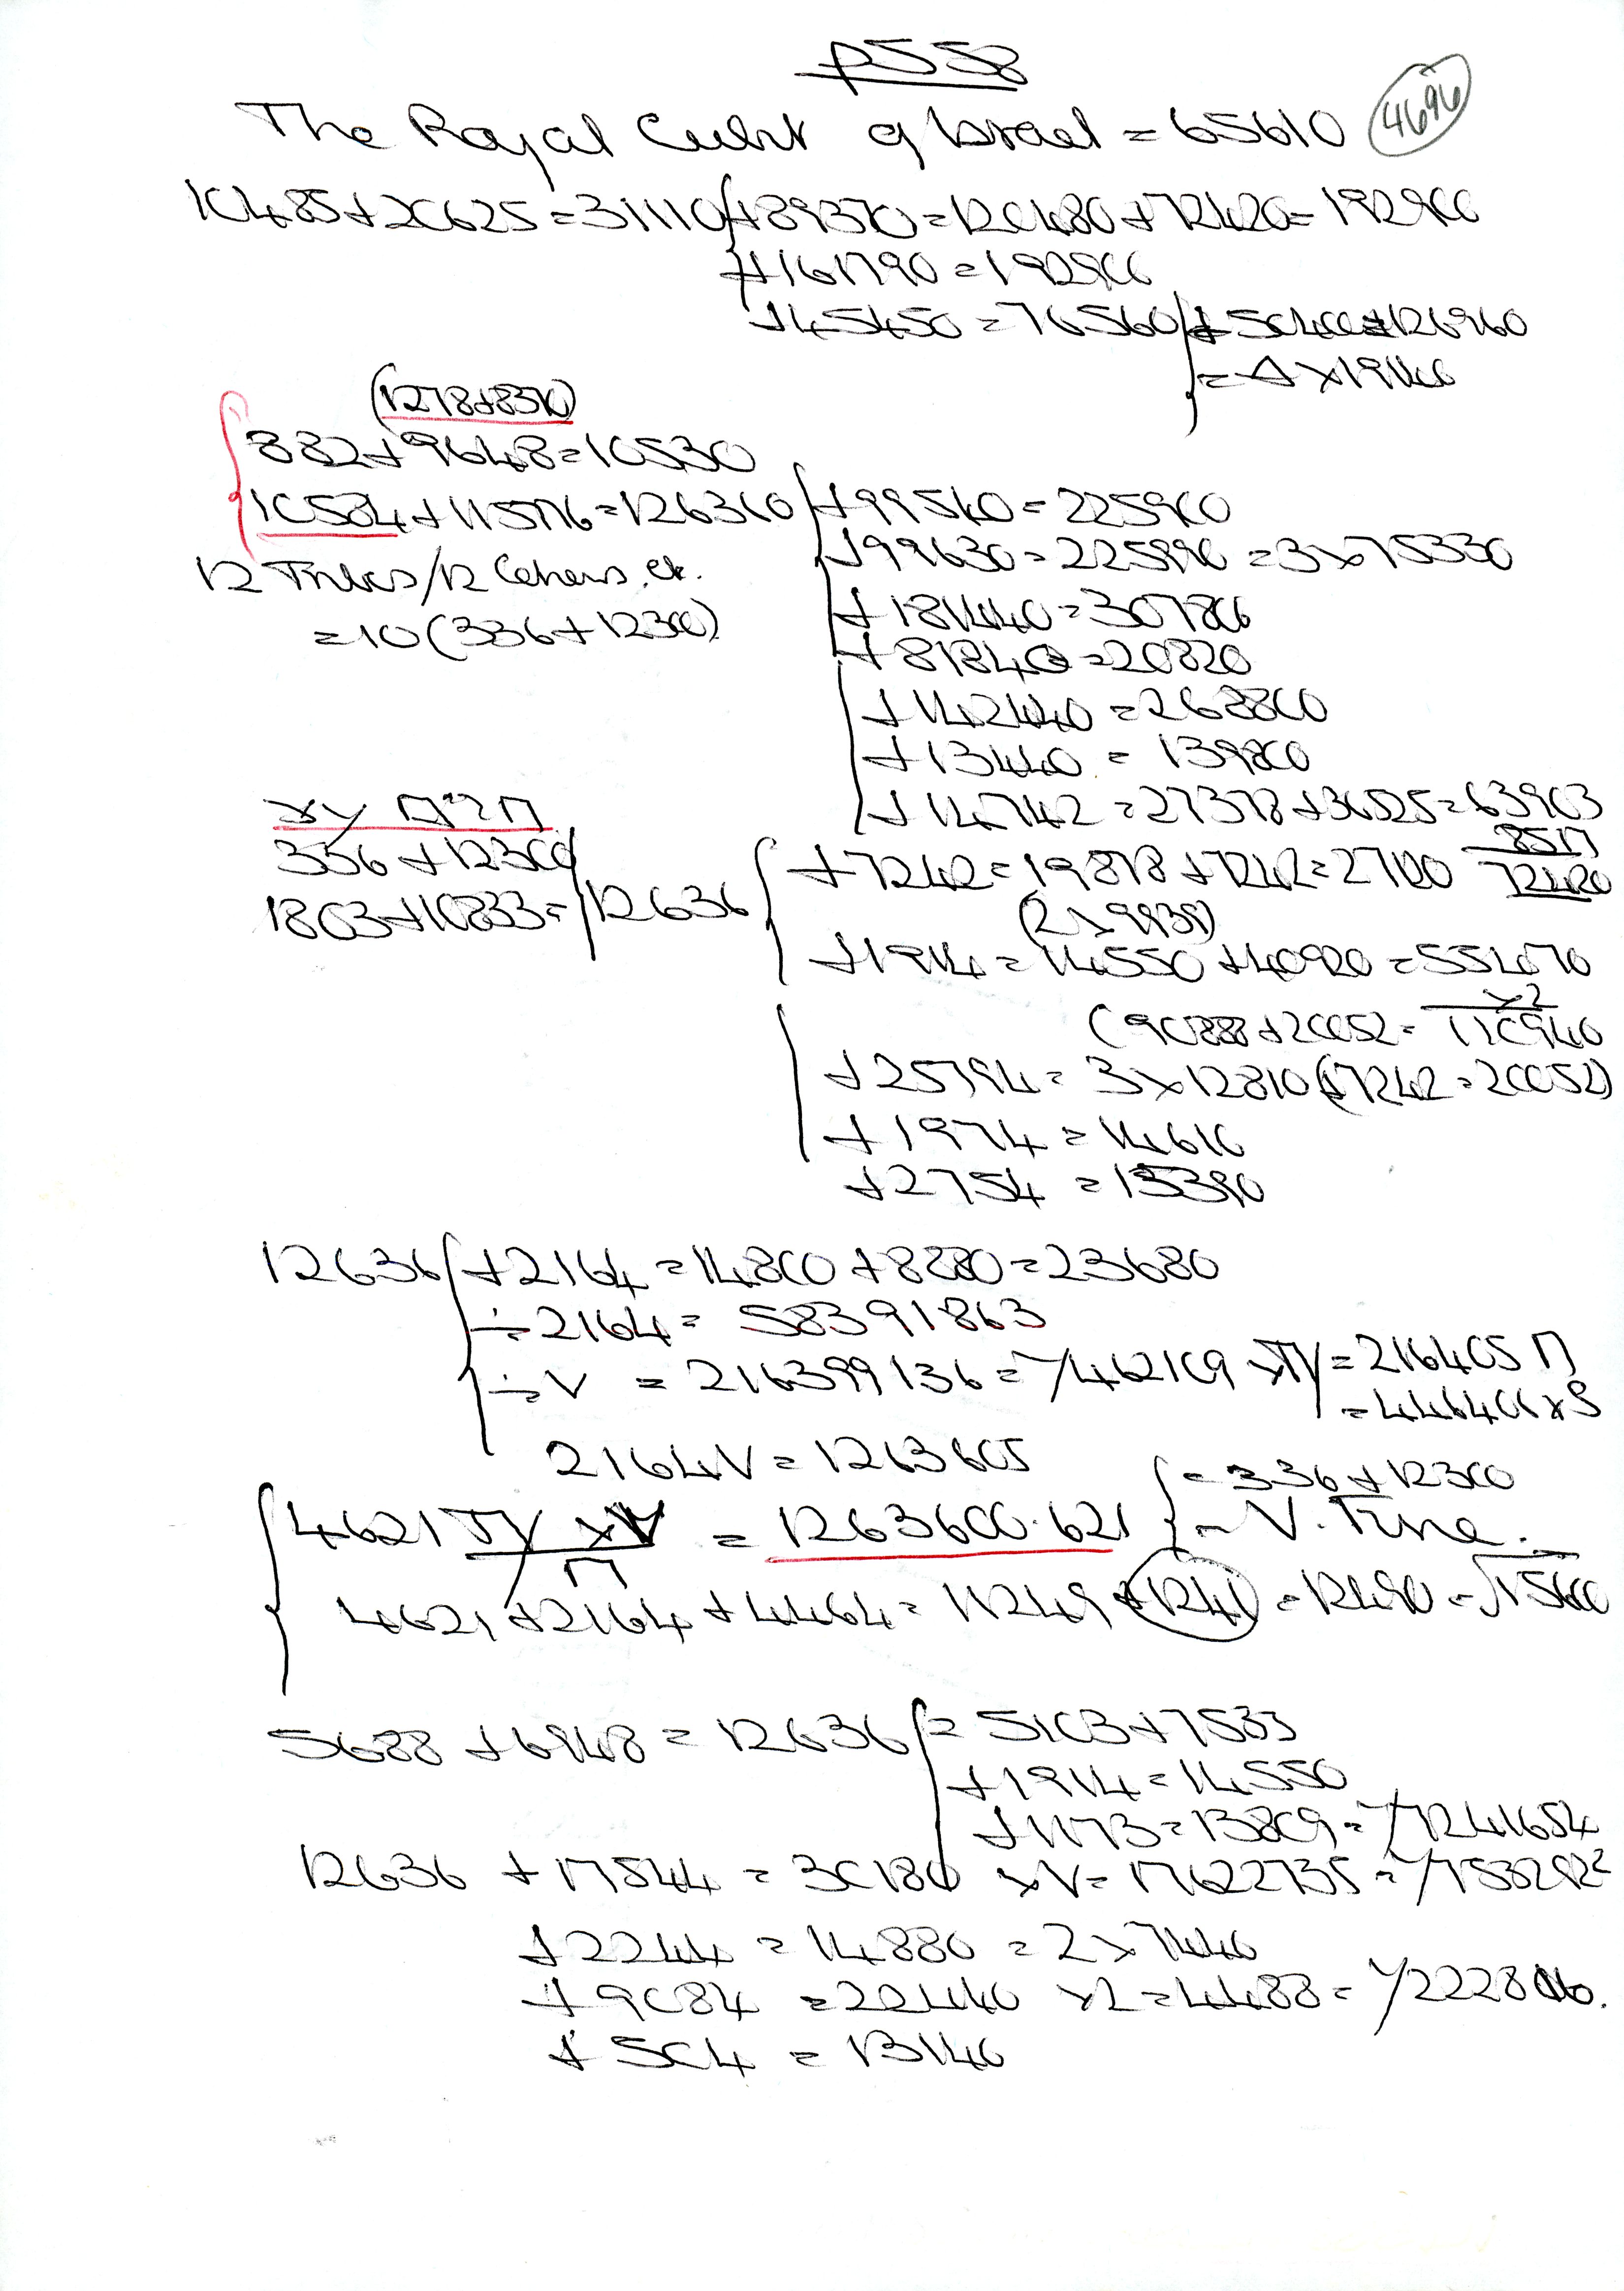 p558
4696
The Royal Cubit of Israel = 65610
10485+20625=31110 +89370=120480+72420=192900
+161790=192900
+45450=76560 +50400=126960
=4×19140
(1278+8370)
882+9648=10530
10584+115776=126360 +99540=225900
+99630=225990=3×75330
12 Tribes/12 Cohens. etc.
+181440=307800
=10(336+12300)
+81840=20820
+142440=268800
+13440=139800
+14742=27378+36525=63903
8517
72420
336+12300
1803+10833= 12636 +7242=19878+7242=27120
(2×9939)
+1914=14550+40920=55470
×2
(90888+20052=110940
+25794=3×12810(+7242=20052)
+1974=14610
+2754=15390
12636 +2164=14800+8880=23680
÷2164=58391863
÷V=216399136=
2164V=1263605
=336+12300
=1263600.621
4621+2164+4464=11249+1241=12490=√1560
5688+6948=12636 =5103+7533
+1914=14550
+1173=13809=
12636+17544=30180×V=17622735=
+2244=14880=2×7440
+9084=22440
+504=13140